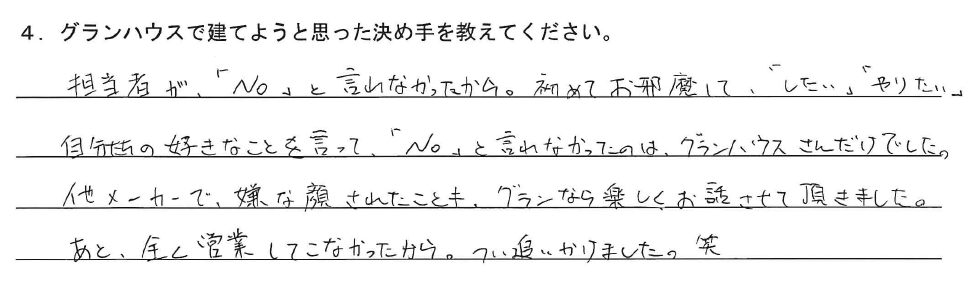 4. グランハウスで建てようと思った決め手を教えてください。
担当者が、「No」と言れなかったから。初めてお邪魔して、「したい」「やりたい」
自分達の好きなことを言って、「No」と言れなかったのは、グランハウスさんだけでした。
他メーカーで、嫌な顔されたことも、グランなら楽しくお話させて頂きました。
あと、全く営業してこなかったから。つい追いかけました。笑